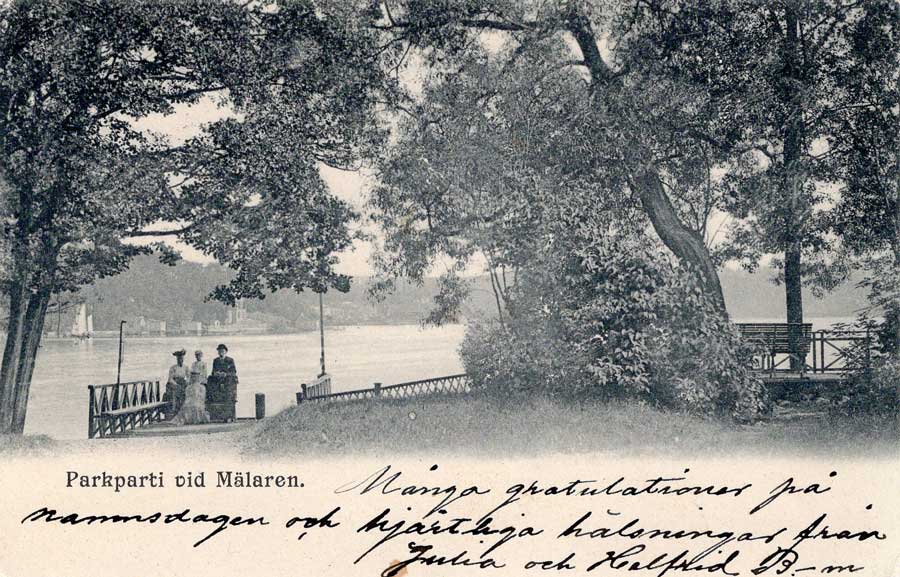 Parkparti vid Mälaren.
Många gratulationer på
namnsdagen och hjärtliga hälsningar från
Julia och Halfrid B-m